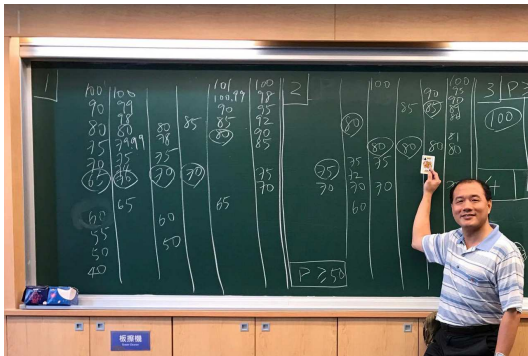 1
100
90
80
75
70
65
60
55
50
40
100
99
98
80
79.99
75
76
70
65
80
78
75
70
60
50
85
70
101
100.99
90
85
80
65
100
98
95
92
90
85
75
70
2
75
70
80
75
72
70
60
100
80
75
70
85
80
90
85
80
100
95
90
89
88
81
80
P ≥ 50
3
P ≥
100
4
板擦機